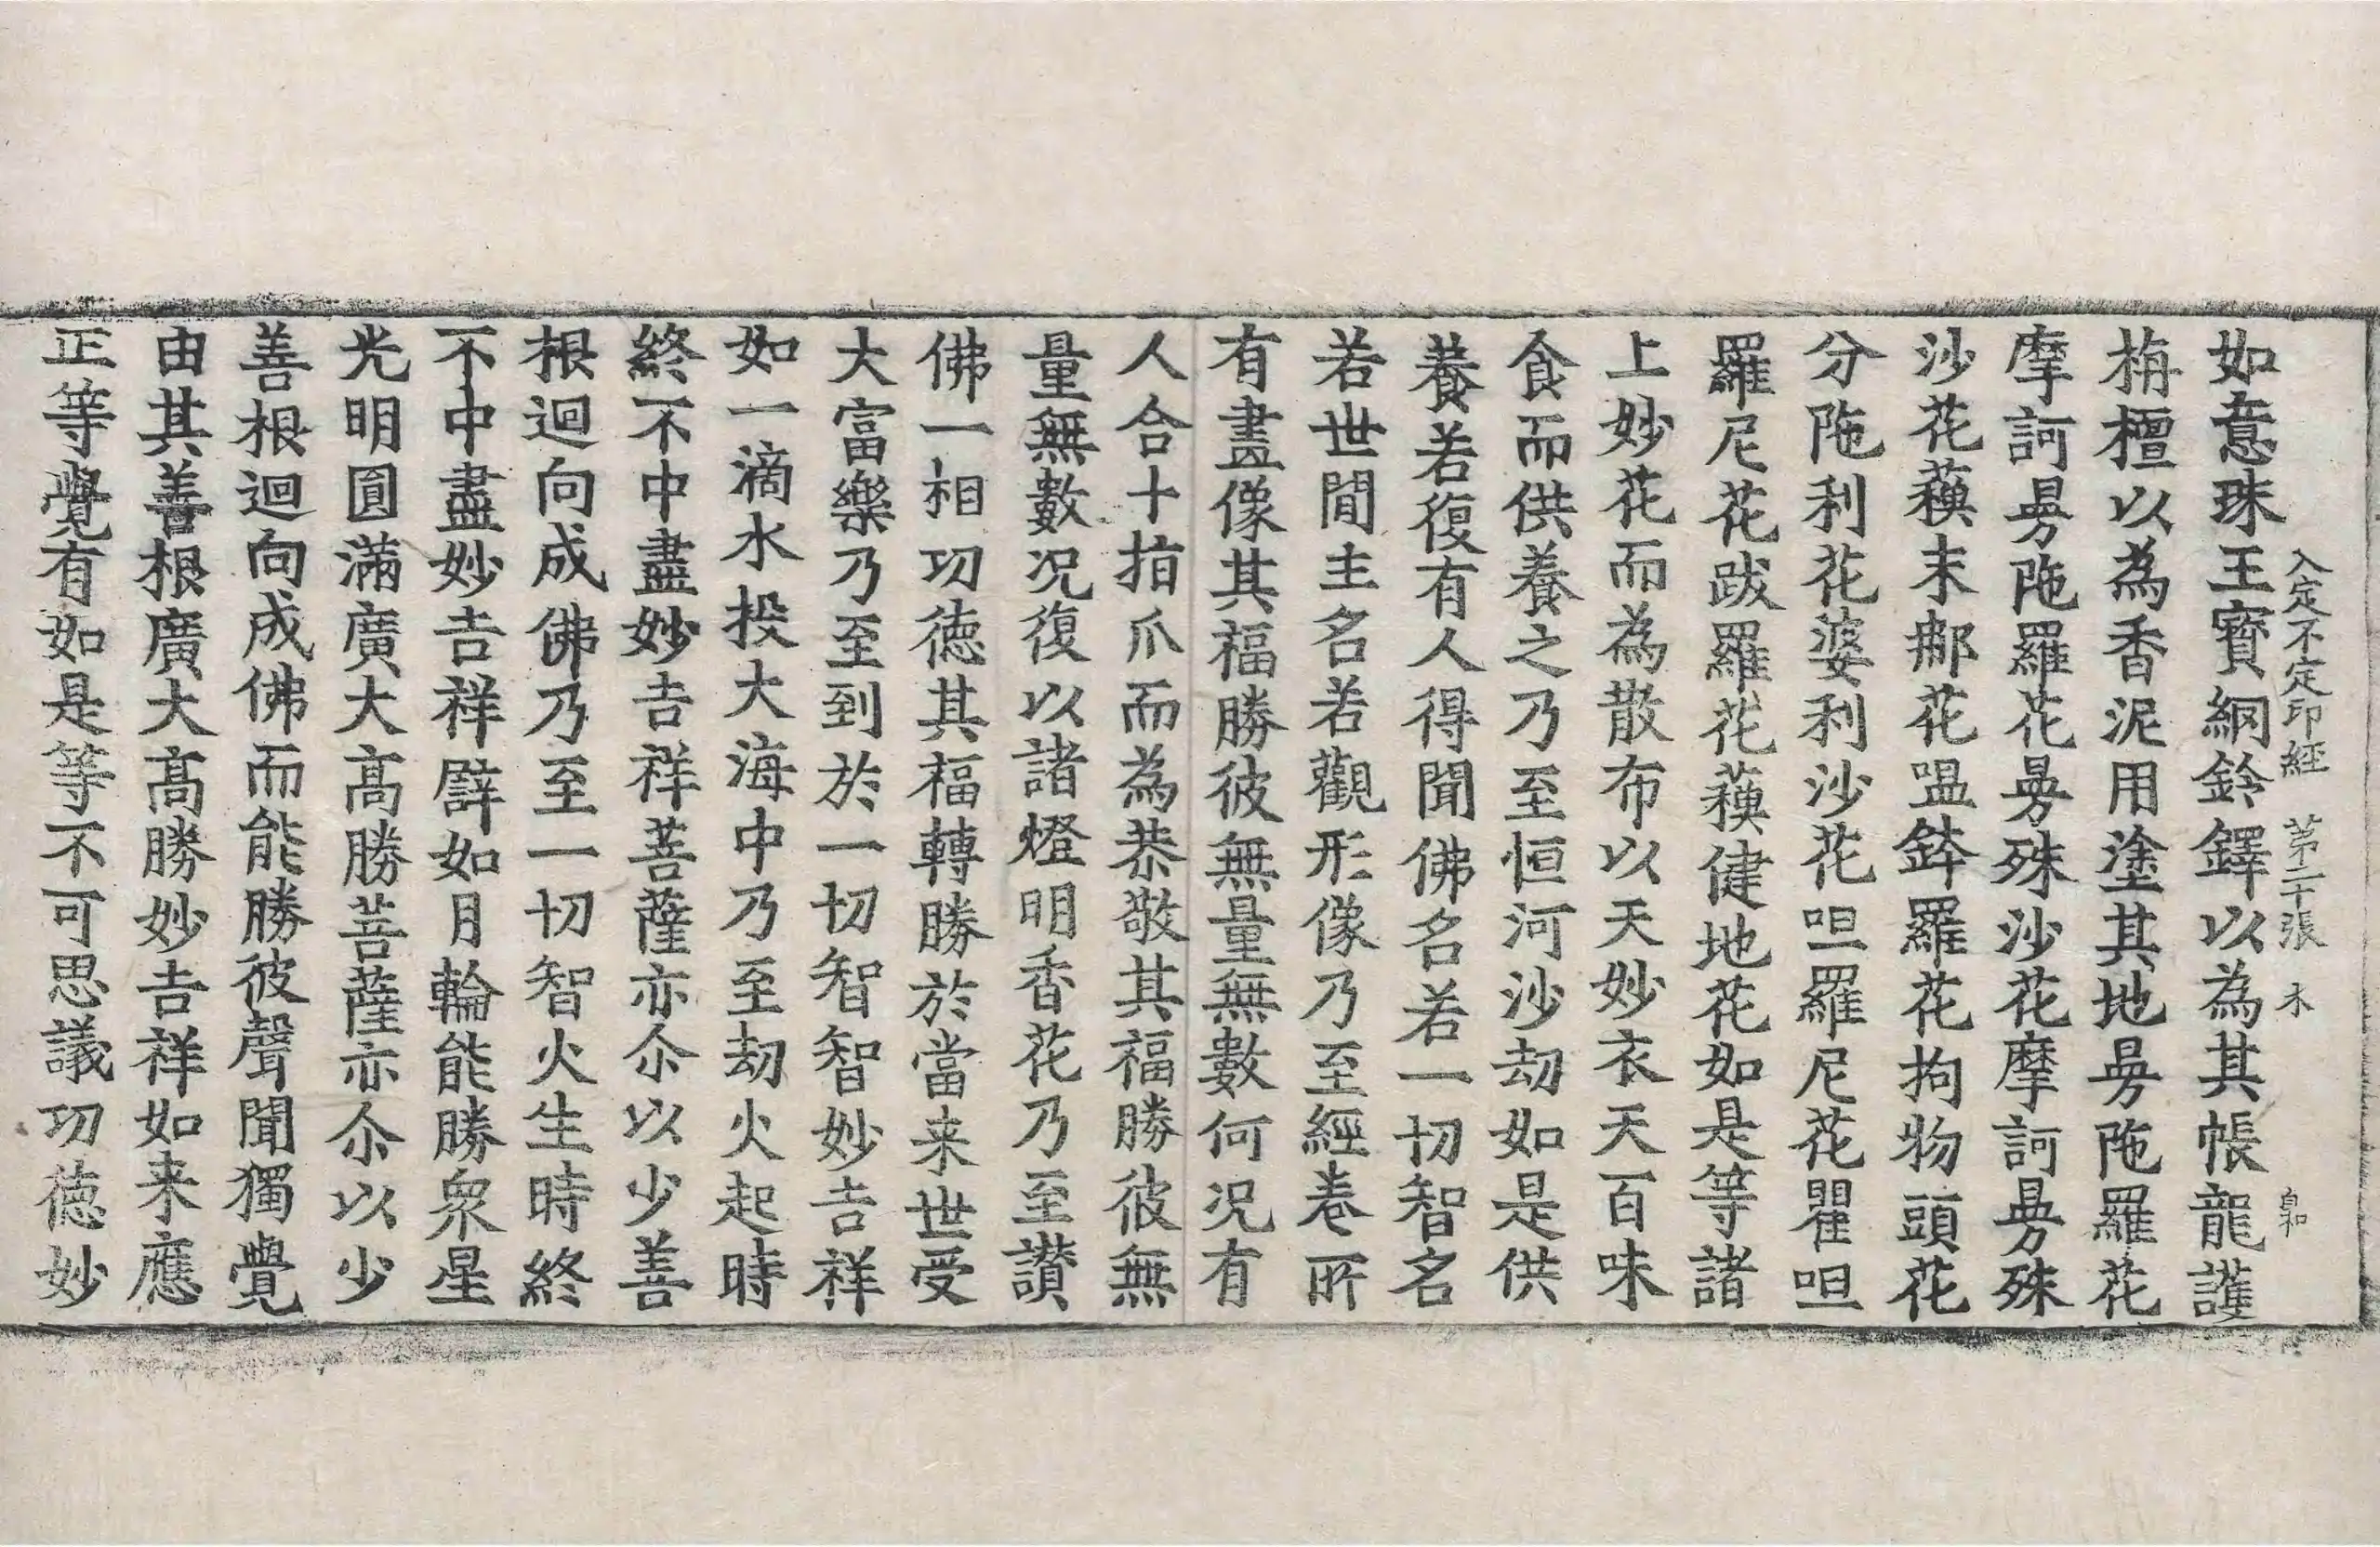 如意珠王寶網鈴鐸以為其帳龍護
入定不定印經 第二十張 木 自和
栴檀以為香泥用塗其地曼陁羅花
摩訶曼陁羅花曼殊沙花摩訶曼殊
沙花蘓末那花嗢鉢羅花拘物頭花
分陁利花婆利沙花呾羅尼花瞿呾
羅尼花跋羅花蘓健地花如是等諸
上妙花而為散布以天妙衣天百味
食而供養之乃至恒河沙劫如是供
養若復有人得聞佛名若一切智名
若世間主名若觀形像乃至經卷所
有畫像其福勝彼無量無數何况有
人合十指爪而為恭敬其福勝彼無
量無數况復以諸燈明香花乃至讃
佛一相功德其福轉勝於當来世受
大富樂乃至到於一切智智妙吉祥
如一滴水投大海中乃至劫火起時
終不中盡妙吉祥菩薩亦尒以少善
根迴向成佛乃至一切智火生時終
不中盡妙吉祥譬如月輪能勝衆星
光明圓滿廣大高勝菩薩亦尒以少
善根迴向成佛而能勝彼聲聞獨覺
由其善根廣大高勝妙吉祥如来應
正等覺有如是等不可思議功德妙